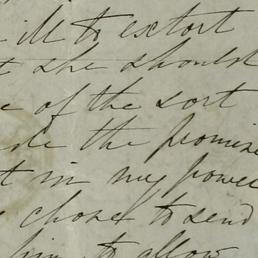 ill to extort
she should
of the sort
the promise
in my power
chose to send
him to allow